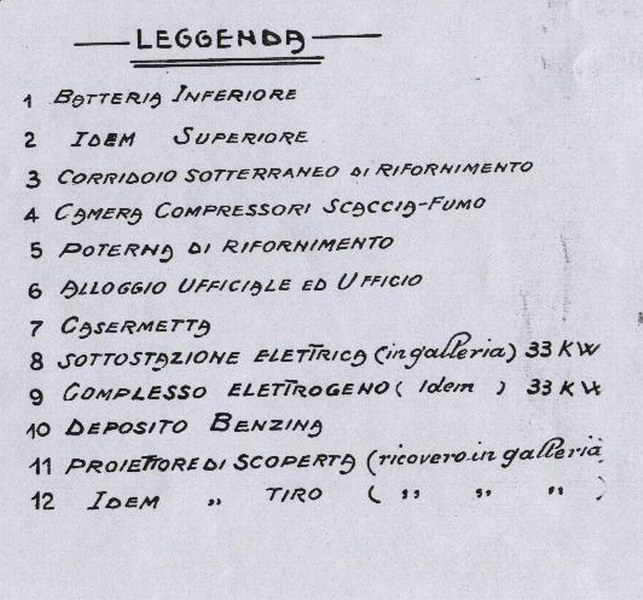 LEGGENDA
1 BATTERIA INFERIORE
2 IDEM SUPERIORE
3 CORRIDOIO SOTTERRANEO DI RIFORNIMENTO
4 CAMERA COMPRESSORI SCACCIA-FUMO
5 POTERNA DI RIFORNIMENTO
6 ALLOGGIO UFFICIALE ED UFFICIO
7 CASERMETTA
8 SOTTOSTAZIONE ELETTRICA (in galleria) 33 KW
9 COMPLESSO ELETTROGENO ( Idem ) 33 KW
10 DEPOSITO BENZINA
11 PROIETTORE DI SCOPERTA (ricovero in galleria
12 IDEM „ TIRO ( „ „ „ )